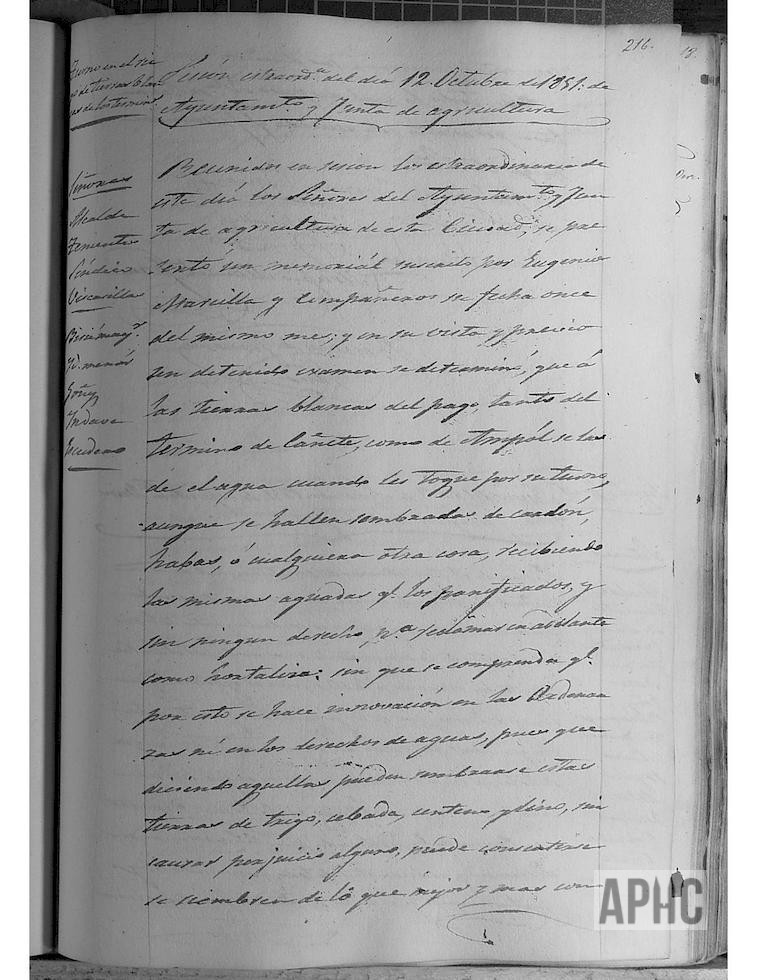 216.
18.
Turno en el rie
go de tierras blan
cas de los terminos
Sesion estraord.ª del día 12. Octubre de 1851: de
Ayuntam.to y Junta de agricultura
Señores
Alcalde
Teniente
Síndico
Viscarilla
mayor
menór
Goñy
Yndave
Escudero
Reunidos en sesion los estraordinaria de
este día los Señores del Ayuntam.to y Jun
ta de agricultura de esta Ciudad, se pre
sentó un memoriál suscrito por Eugenio
Marcilla y Compañeros su fecha once
del mismo mes; y en su vista y previo
un detenido exámen se determinó, que á
las tierras blancas del pago, tanto del
termino de Cañete, como de Ampól se las
dé el agua cuando les toque por su turno,
aunque se hallen sembradas de cardón,
habas, ó cualquiera otra cosa, recibiendo
las mismas aguadas q.e los panificados, y
sin ningun derecho, p.ª reclamar en adelante
como hortaliza: sin que se comprenda q.e
por esto se hace innovación en las Ordenan
zas ni en los derechos de aguas, pues que
diciendo aquellas pueden sembrarse estas
tierras de trigo, cebada, centeno y lino, sin
causar perjuicio alguno, puede consentirse
se siembren de lo que mejor y mas con
APHC